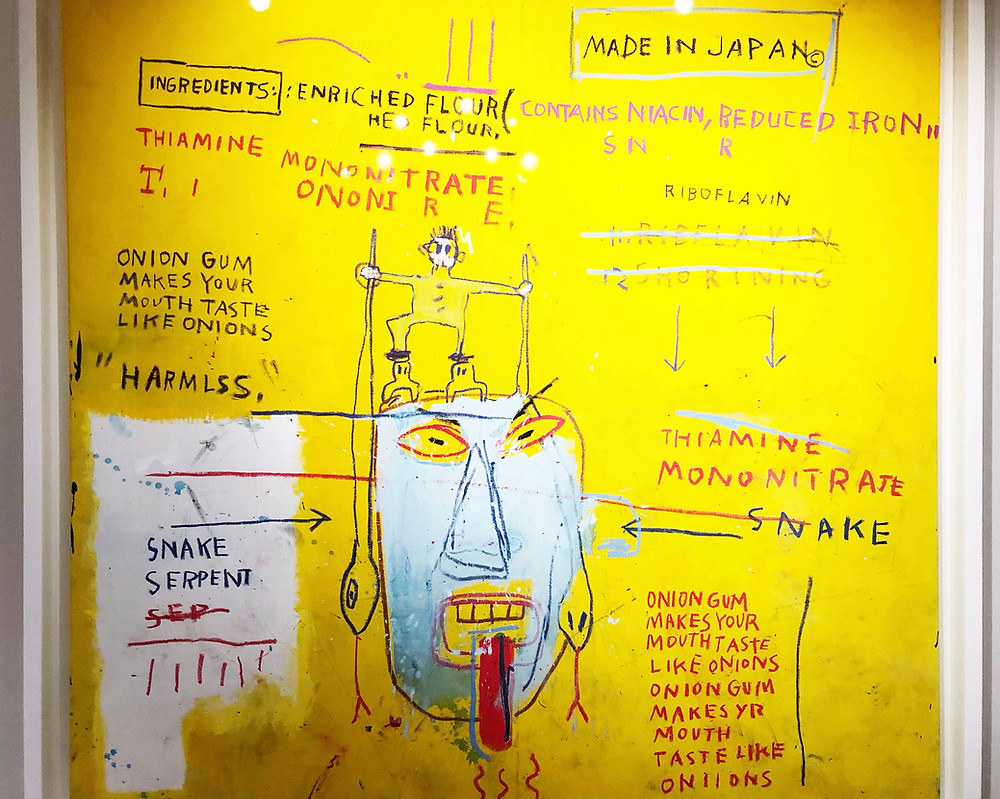 MADE IN JAPAN©
INGREDIENTS: : ENRICHED FLOUR (CONTAINS NIACIN, REDUCED IRON,,
HED FLOUR,
S N R
THIAMINE MONONITRATE,
T, I ONONI R E,
RIBOFLAVIN
ONION GUM
MAKES YOUR
MOUTH TASTE
LIKE ONIONS
"HARMLSS,"
THIAMINE
MONONITRATE
SNAKE
SNAKE
SERPENT
SEP
ONION GUM
MAKES YOUR
MOUTH TASTE
LIKE ONIONS
ONION GUM
MAKES YR
MOUTH
TASTE LIKE
ONIIONS